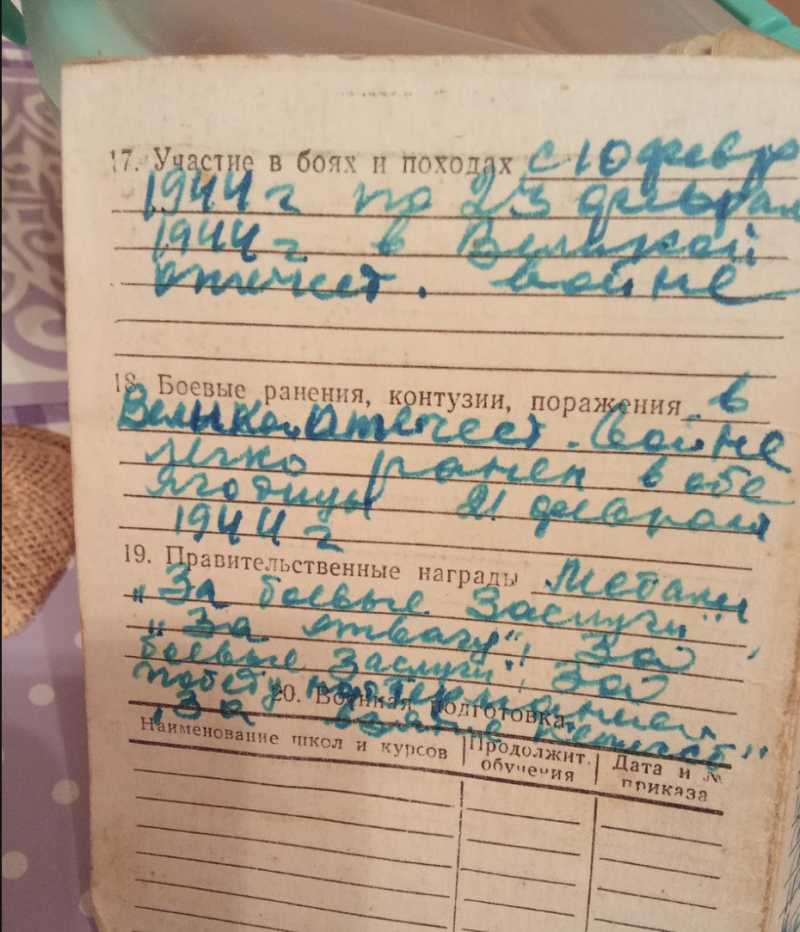 17. Участие в боях и походах с 10 февр
1944 г по 23 феврал
1944 г в Великой
отечест. войне
18. Боевые ранения, контузии, поражения в
Великой отечест. войне
легко ранен в обе
ягодицы 21 февраля
1944 г
19. Правительственные награды Медали
„За боевые Заслуги"
„За отвагу", За
боевые заслуги", За
победу над Германией
20. Военная подготовка.
„За взятие
Наименование школ и курсов
Продолжит. обучения
Дата и № приказа